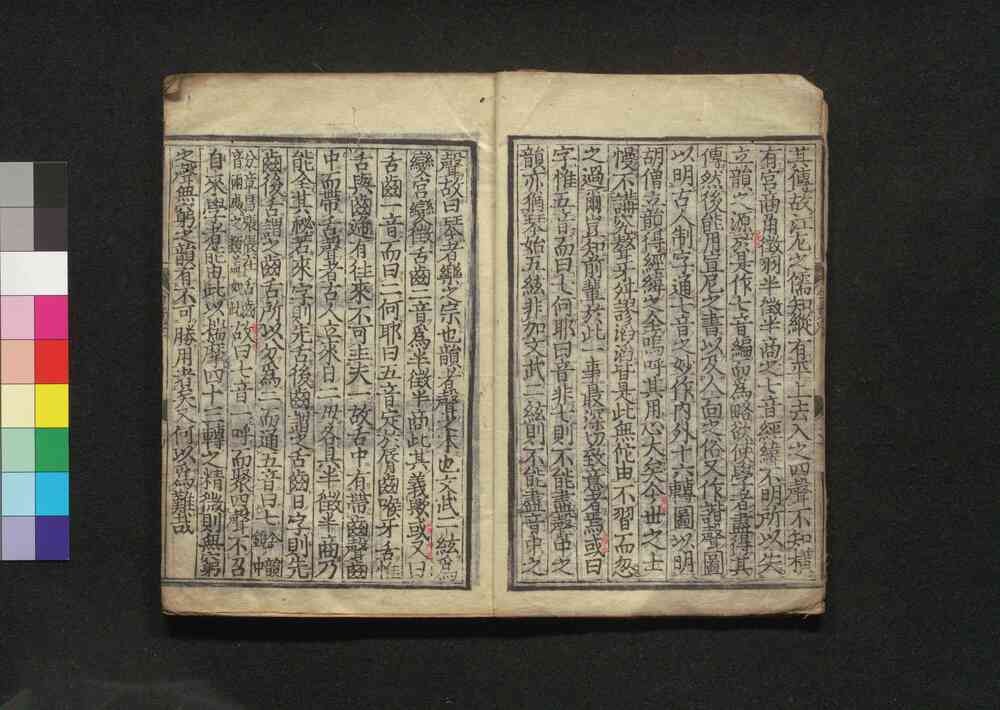 其傳故江左之儒知縱有平上去入之四聲不知橫
有宮商角徵羽半徵半商之七音經緯不明所以失
立韻之源於是作七音編而為略欲使學者盡得其
傳然後能用宣尼之書以及人面之俗又作諧聲圖
以明古人制字通七音之妙作內外十六轉圖以明
胡僧立韻得經緯之全嗚呼其用心大矣今世之士
慢不講究聱牙舛謬滔滔皆是此無佗由不習而忽
之過爾豈知前輩於此一事最深切致意者焉或曰
字惟五音而曰七何耶曰音非七則不能盡聲中之
韻亦猶琴始五絃非加文武二絃則不能盡音中之
聲故曰琴者樂之宗也韻者聲之本也文武二絃為
變宮變徵舌齒二音為半徵半商此其義歟或又曰
舌齒一音而曰二何耶曰五音定於脣齒喉牙舌惟
舌與齒遞有往來不可主夫一故舌中有帶齒聲齒
中而帶舌聲者古人立來日二母各具半徵半商乃
能全其秘若來字則先舌後齒謂之舌齒日字則先
齒後舌謂之齒舌所以分為二而通五音曰七今韻鏡中
分章昌張倀在舌齒音兩處之類蓋如此故曰七音一呼而聚四聲不召
自來學者能由此以揣摩四十三轉之精微則無窮
之聲無窮之韻有不可勝用者矣又何以為難哉